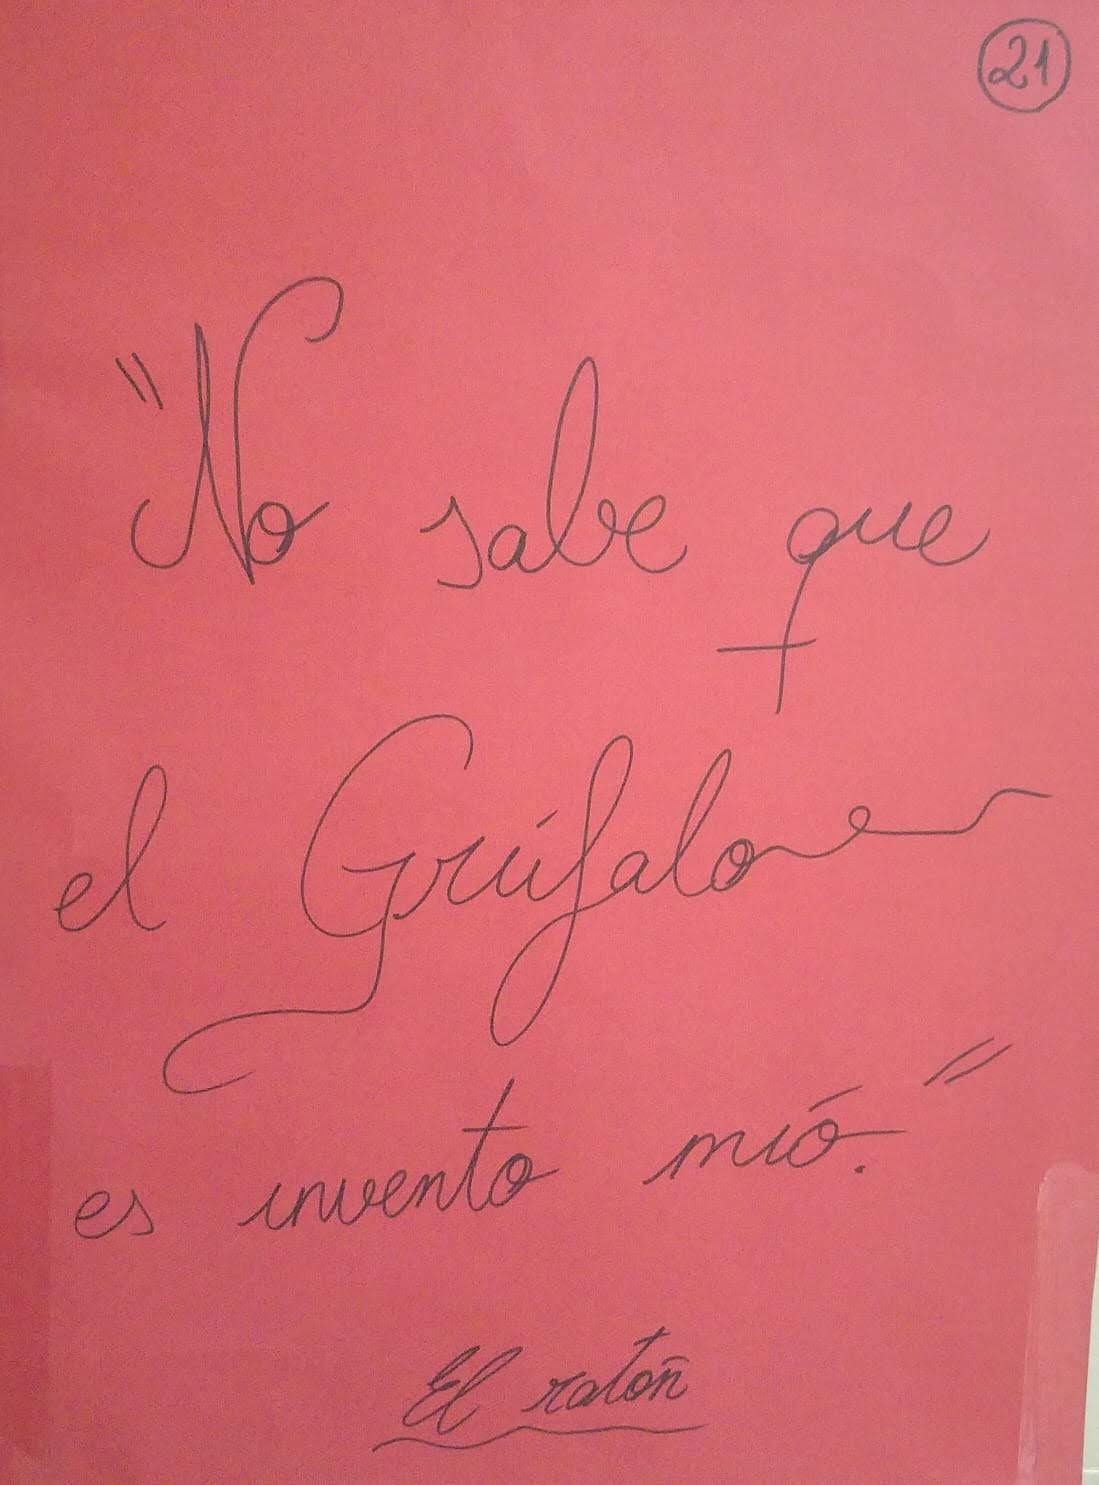 21
"No sabe que
el Grúfalo
es invento mió."
El ratón